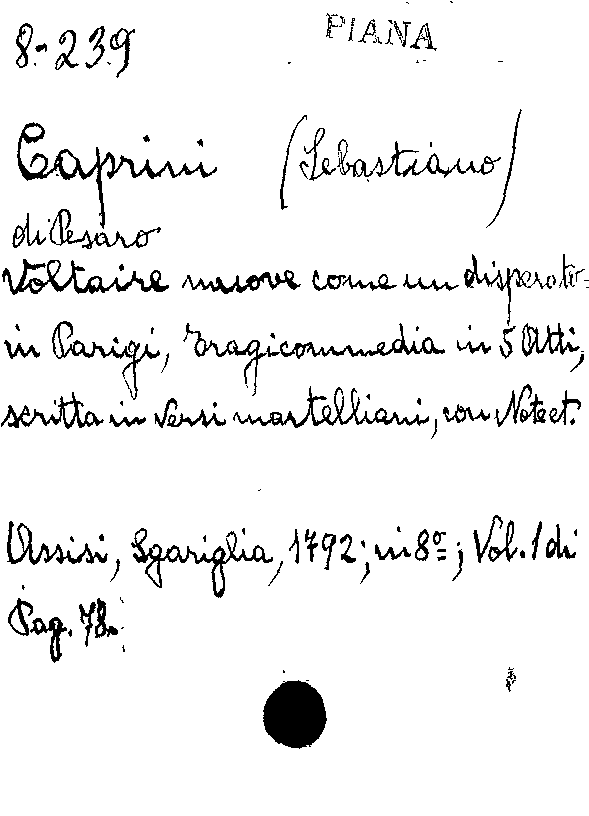 8-239
PIANA
Caprini (Sebastiano)
di Pesaro
Voltaire muove come un disperato
in Parigi, Tragicommedia in 5 Atti,
scritta in versi martelliani, con Note et.
Assisi, Sgariglia, 1792; in 8º; Vol. 1 di
Pag. 78.